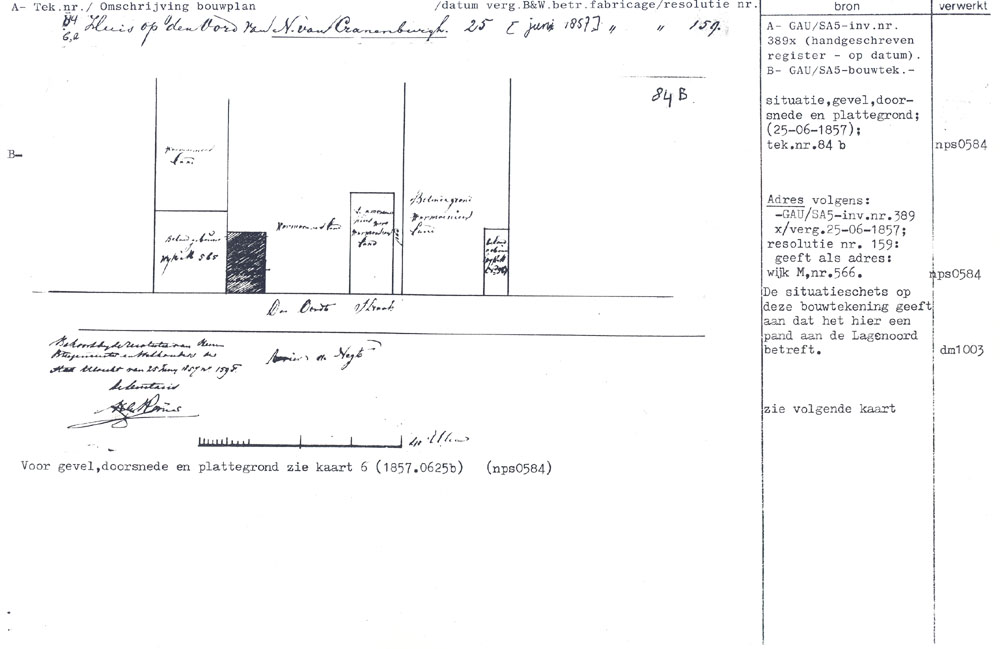 A- Tek.nr./ Omschrijving bouwplan /datum verg.B&W.betr.fabricage/resolutie nr.
84 Huis op den Oord van N. van Cranenburgh. 25 [juni 1857] " " 159.
bron
verwerkt
A- GAU/SA5-inv.nr.
389x (handgeschreven
register - op datum).
B- GAU/SA5-bouwtek.-
84 B
situatie,gevel,door-
snede en plattegrond;
(25-06-1857);
tek.nr.84 b
nps0584
B-
Adres volgens:
-GAU/SA5-inv.nr.389
x/verg.25-06-1857;
resolutie nr. 159:
geeft als adres:
wijk M,nr.566.
nps0584
De situatieschets op
deze bouwtekening geeft
aan dat het hier een
pand aan de Lagenoord
betreft.
dm1003
zie volgende kaart
wijk M 565
Straat
Behoort bij de resolutie van Heeren
Burgemeester en Wethouders der
Stad Utrecht van 25 Juny 1857 no 159
De Secretaris
Voor gevel,doorsnede en plattegrond zie kaart 6 (1857.0625b) (nps0584)